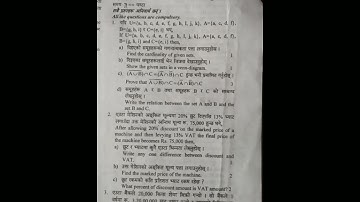 समय: ३
सबै प्रश्नहरू अनिवार्य छन् ।
All the questions are compulsory.
1. यदि U={a, b, c, d, e, f, g, h, i, j, k}, A={a, c, d, f},
B={g, h, i} र C={e, i} भए,
If U={a, b, c, d, e, f, g, h, i, j, k}, A={a, c, d, f},
B={g, h, i} and C={e, i} then,
a) दिइएको समूहहरूको गणनात्मकता पत्ता लगाउनुहोस् ।
Find the cardinality of given sets.
b) दिइएका समूहहरूलाई भेन चित्रमा देखाउनुहोस् ।
Show the given sets in a venn-diagram.
हुन्छ भनी प्रमाणित गर्नुहोस् ।
Prove that
d) समूहहरू A र B तथा समूहहरू B र C को सम्बन्ध
लेख्नुहोस् ।
Write the relation between the set A and B and
the set B and C.
2. एउटा मेसिनको अङ्कित मूल्यमा 20% छुट दिएपछि 13% भ्याट
लगाउँदा उक्त मेसिनको अन्तिम मूल्य रू. 75,000 हुन्छ भने,
After allowing 20% discount on the marked price of
a machine and then levying 13% VAT the final price of
the machine becomes Rs. 75,000 then,
a) छुट र भ्याटमा कुनै एउटा भिन्नता लेख्नुहोस् ।
Write any one difference between discount and
VAT.
b) उक्त मेसिनको अङ्कित मूल्य पत्ता लगाउनुहोस् ।
Find the marked price of the machine. 2
c) छुट रकमको कति प्रतिशत भ्याट रकम रहेछ ?
What percent of discount amount is VAT amount? 2